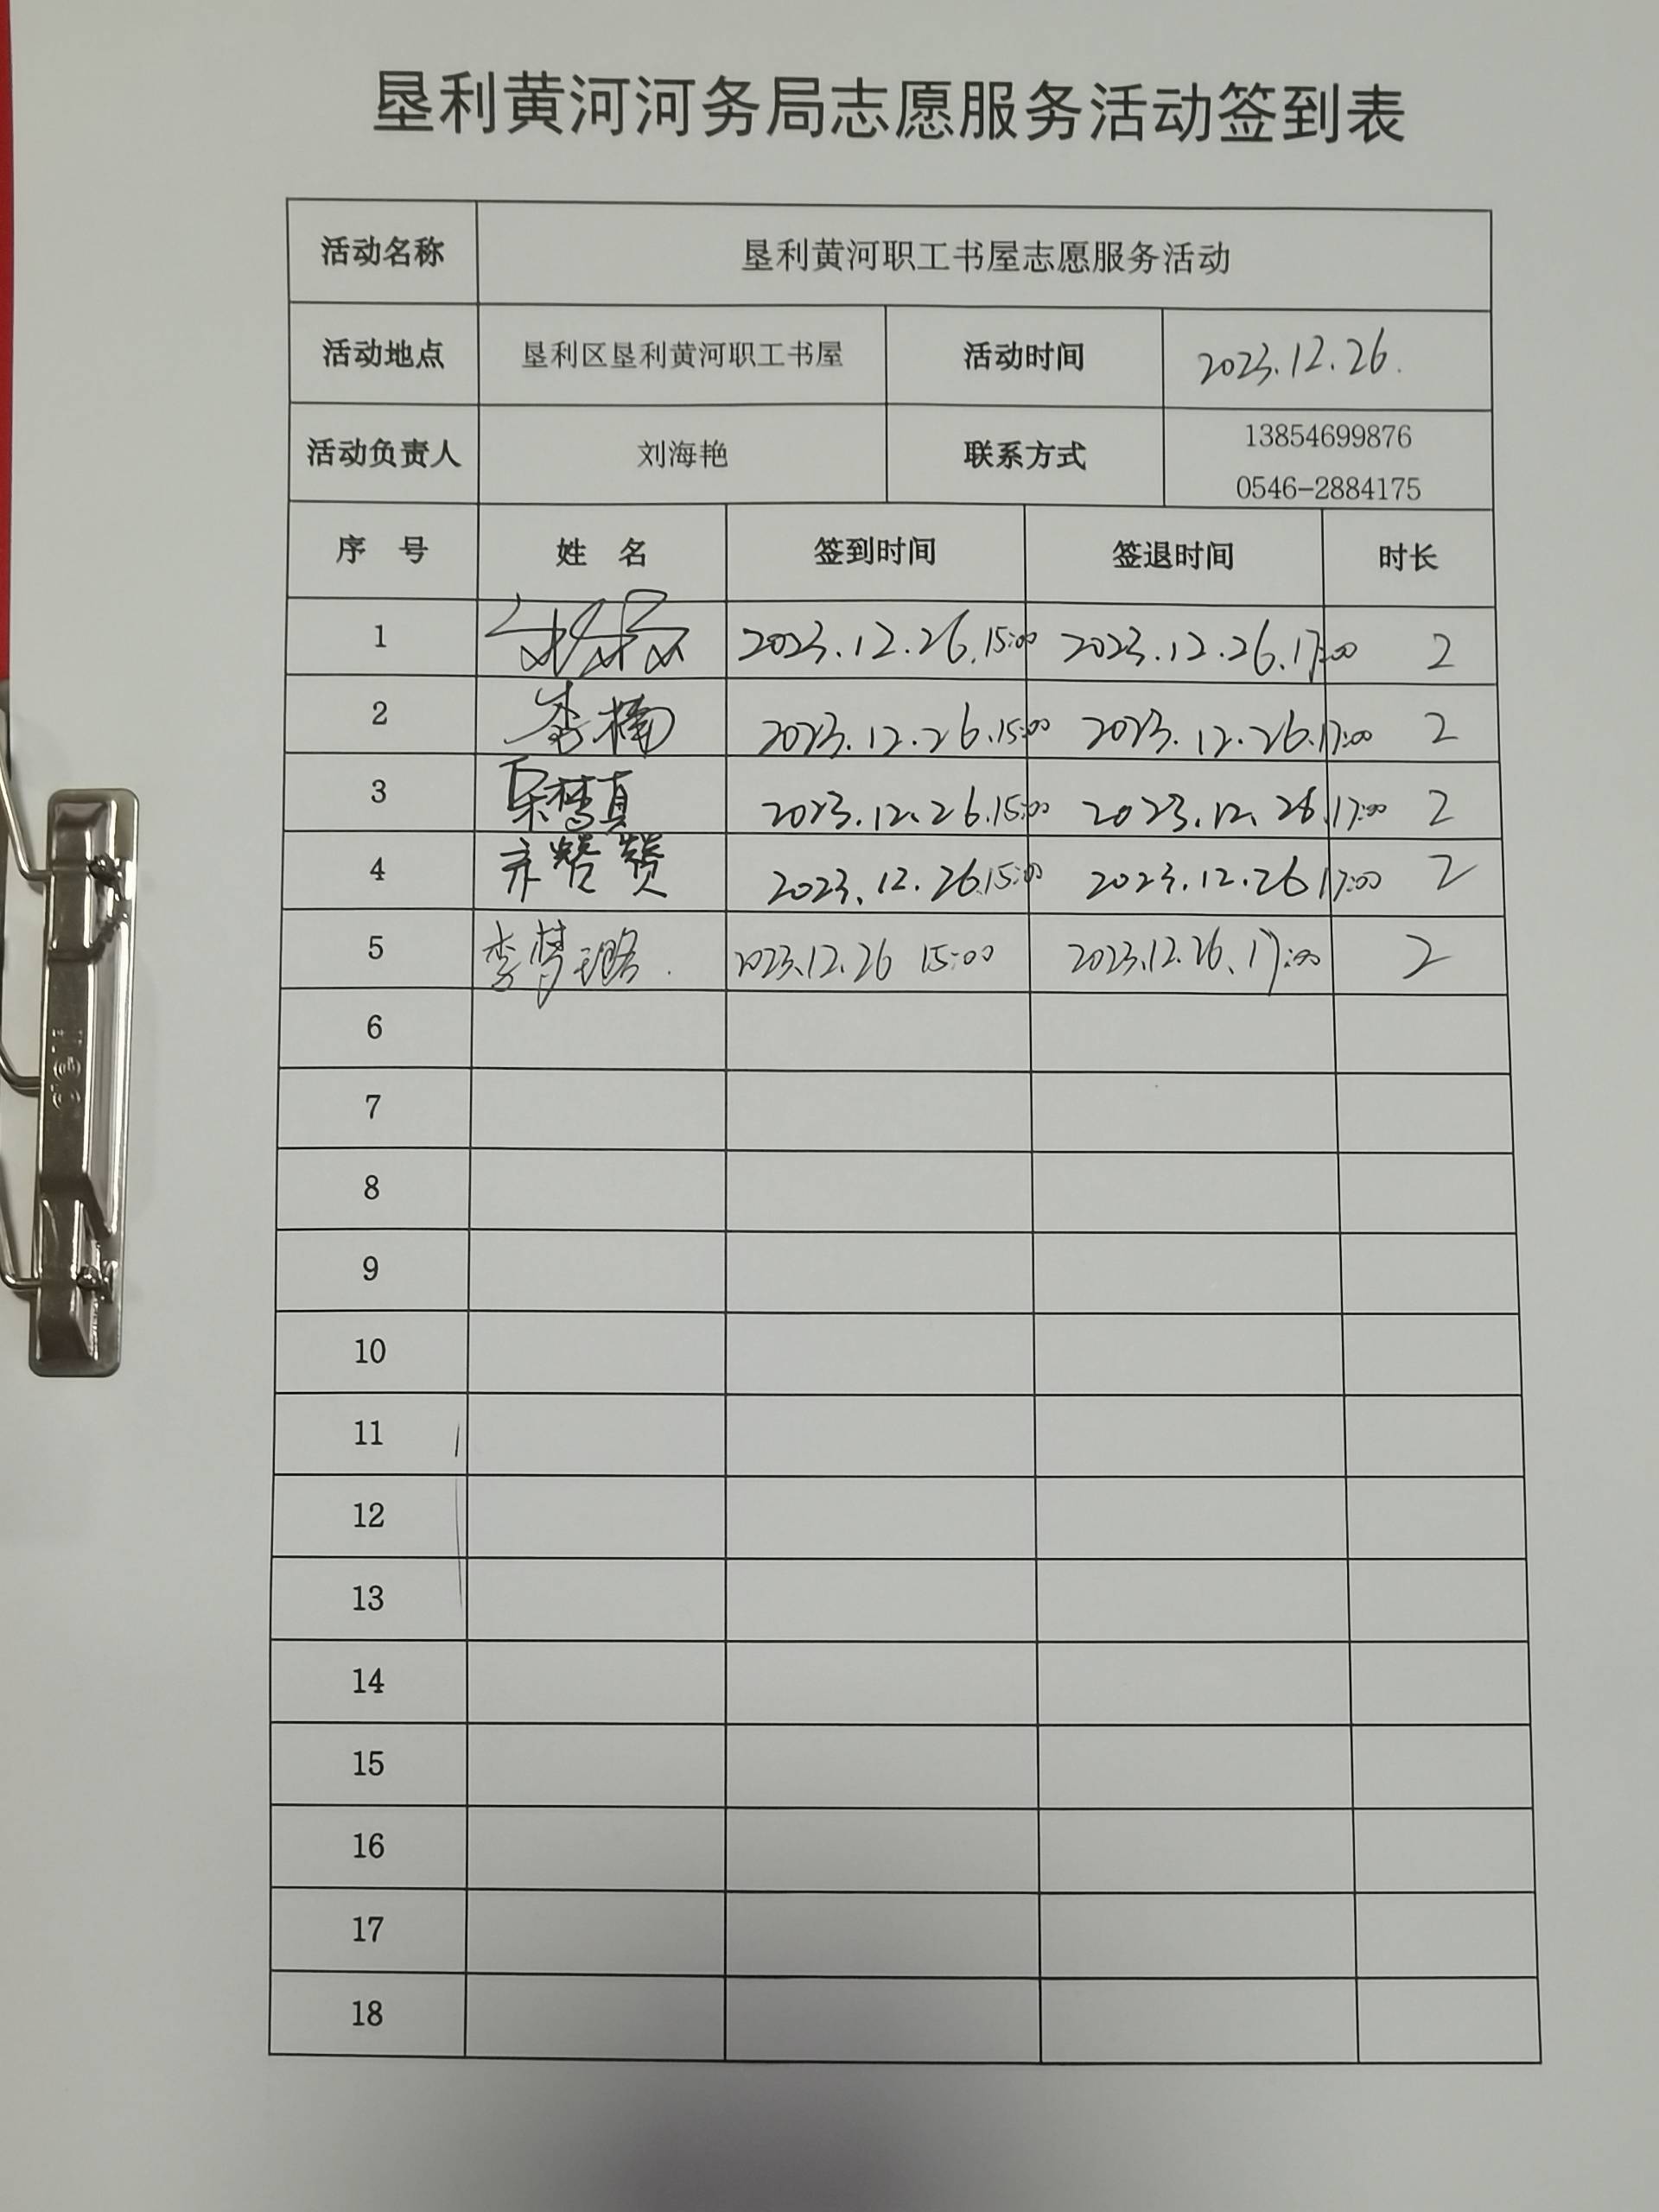 垦利黄河河务局志愿服务活动签到表
活动名称 垦利黄河职工书屋志愿服务活动
活动地点 垦利区垦利黄河职工书屋 活动时间 2023.12.26.
活动负责人 刘海艳 联系方式 13854699876
0546-2884175
序 号 姓 名 签到时间 签退时间 时长
1 2023.12.26.15:00 2023.12.26.17:00 2
2 李楠 2023.12.26.15:00 2023.12.26.17:00 2
3 梦真 2023.12.26.15:00 2023.12.26.17:00 2
4 2023.12.26.15:00 2023.12.26 17:00 2
5 李梦璐. 2023.12.26 15:00 2023.12.26.17:00 2
6
7
8
9
10
11
12
13
14
15
16
17
18